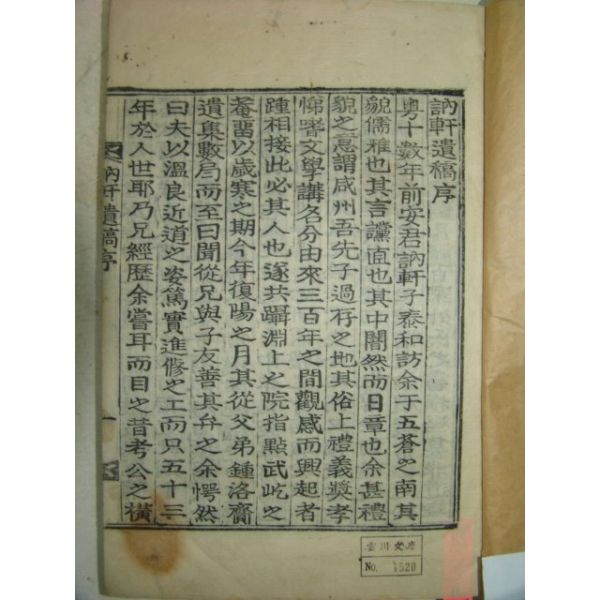 訥軒遺稿序
粤十數年前安君訥軒子泰和訪余于五蒼之南其
貌儒雅也其言讜直也其中闇然而日章也余甚禮
貌之意謂咸州吾先子過存之地其俗上禮義奬孝
悌嗜文學講名分由來三百年之間觀感而興起者
踵相接此必其人也遂共躡淵上之院指點武屹之
菴留以歲寒之期今年復陽之月其從父弟鍾洛齎
遺集數局而至曰聞從兄與子友善其弁之余愕然
曰夫以溫良近道之姿篤實進修之工而只五十三
年於人世耶乃兄經歷余嘗耳而目之昔考公之橫
訥軒遺稿序
一
文庫
No. 4520